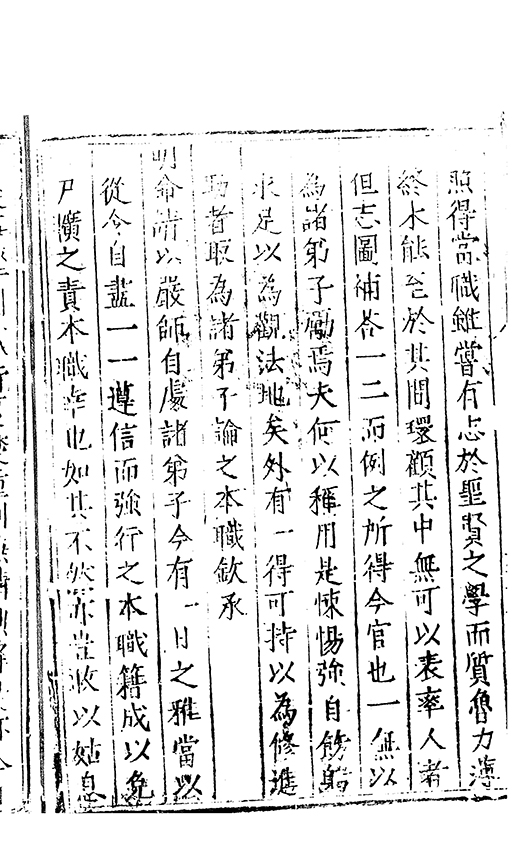 照得當職雖嘗有志於聖賢之學而質魯力薄
終未能至於其間環顧其中無可以表率人者
但志圖補荅一二而例之所得今官也一無以
為諸弟子勵焉夫何以稱用是悚惕強自飭躬
求足以為觀法地矣外有一得可持以為修進
助者取為諸弟子論之本職欽承
明命請以嚴師自處諸弟子今有一日之雅當以
從今自盡一一遵信而強行之本職籍成以免
尸瘝之責本職幸也如其不然亦豈敢以姑息